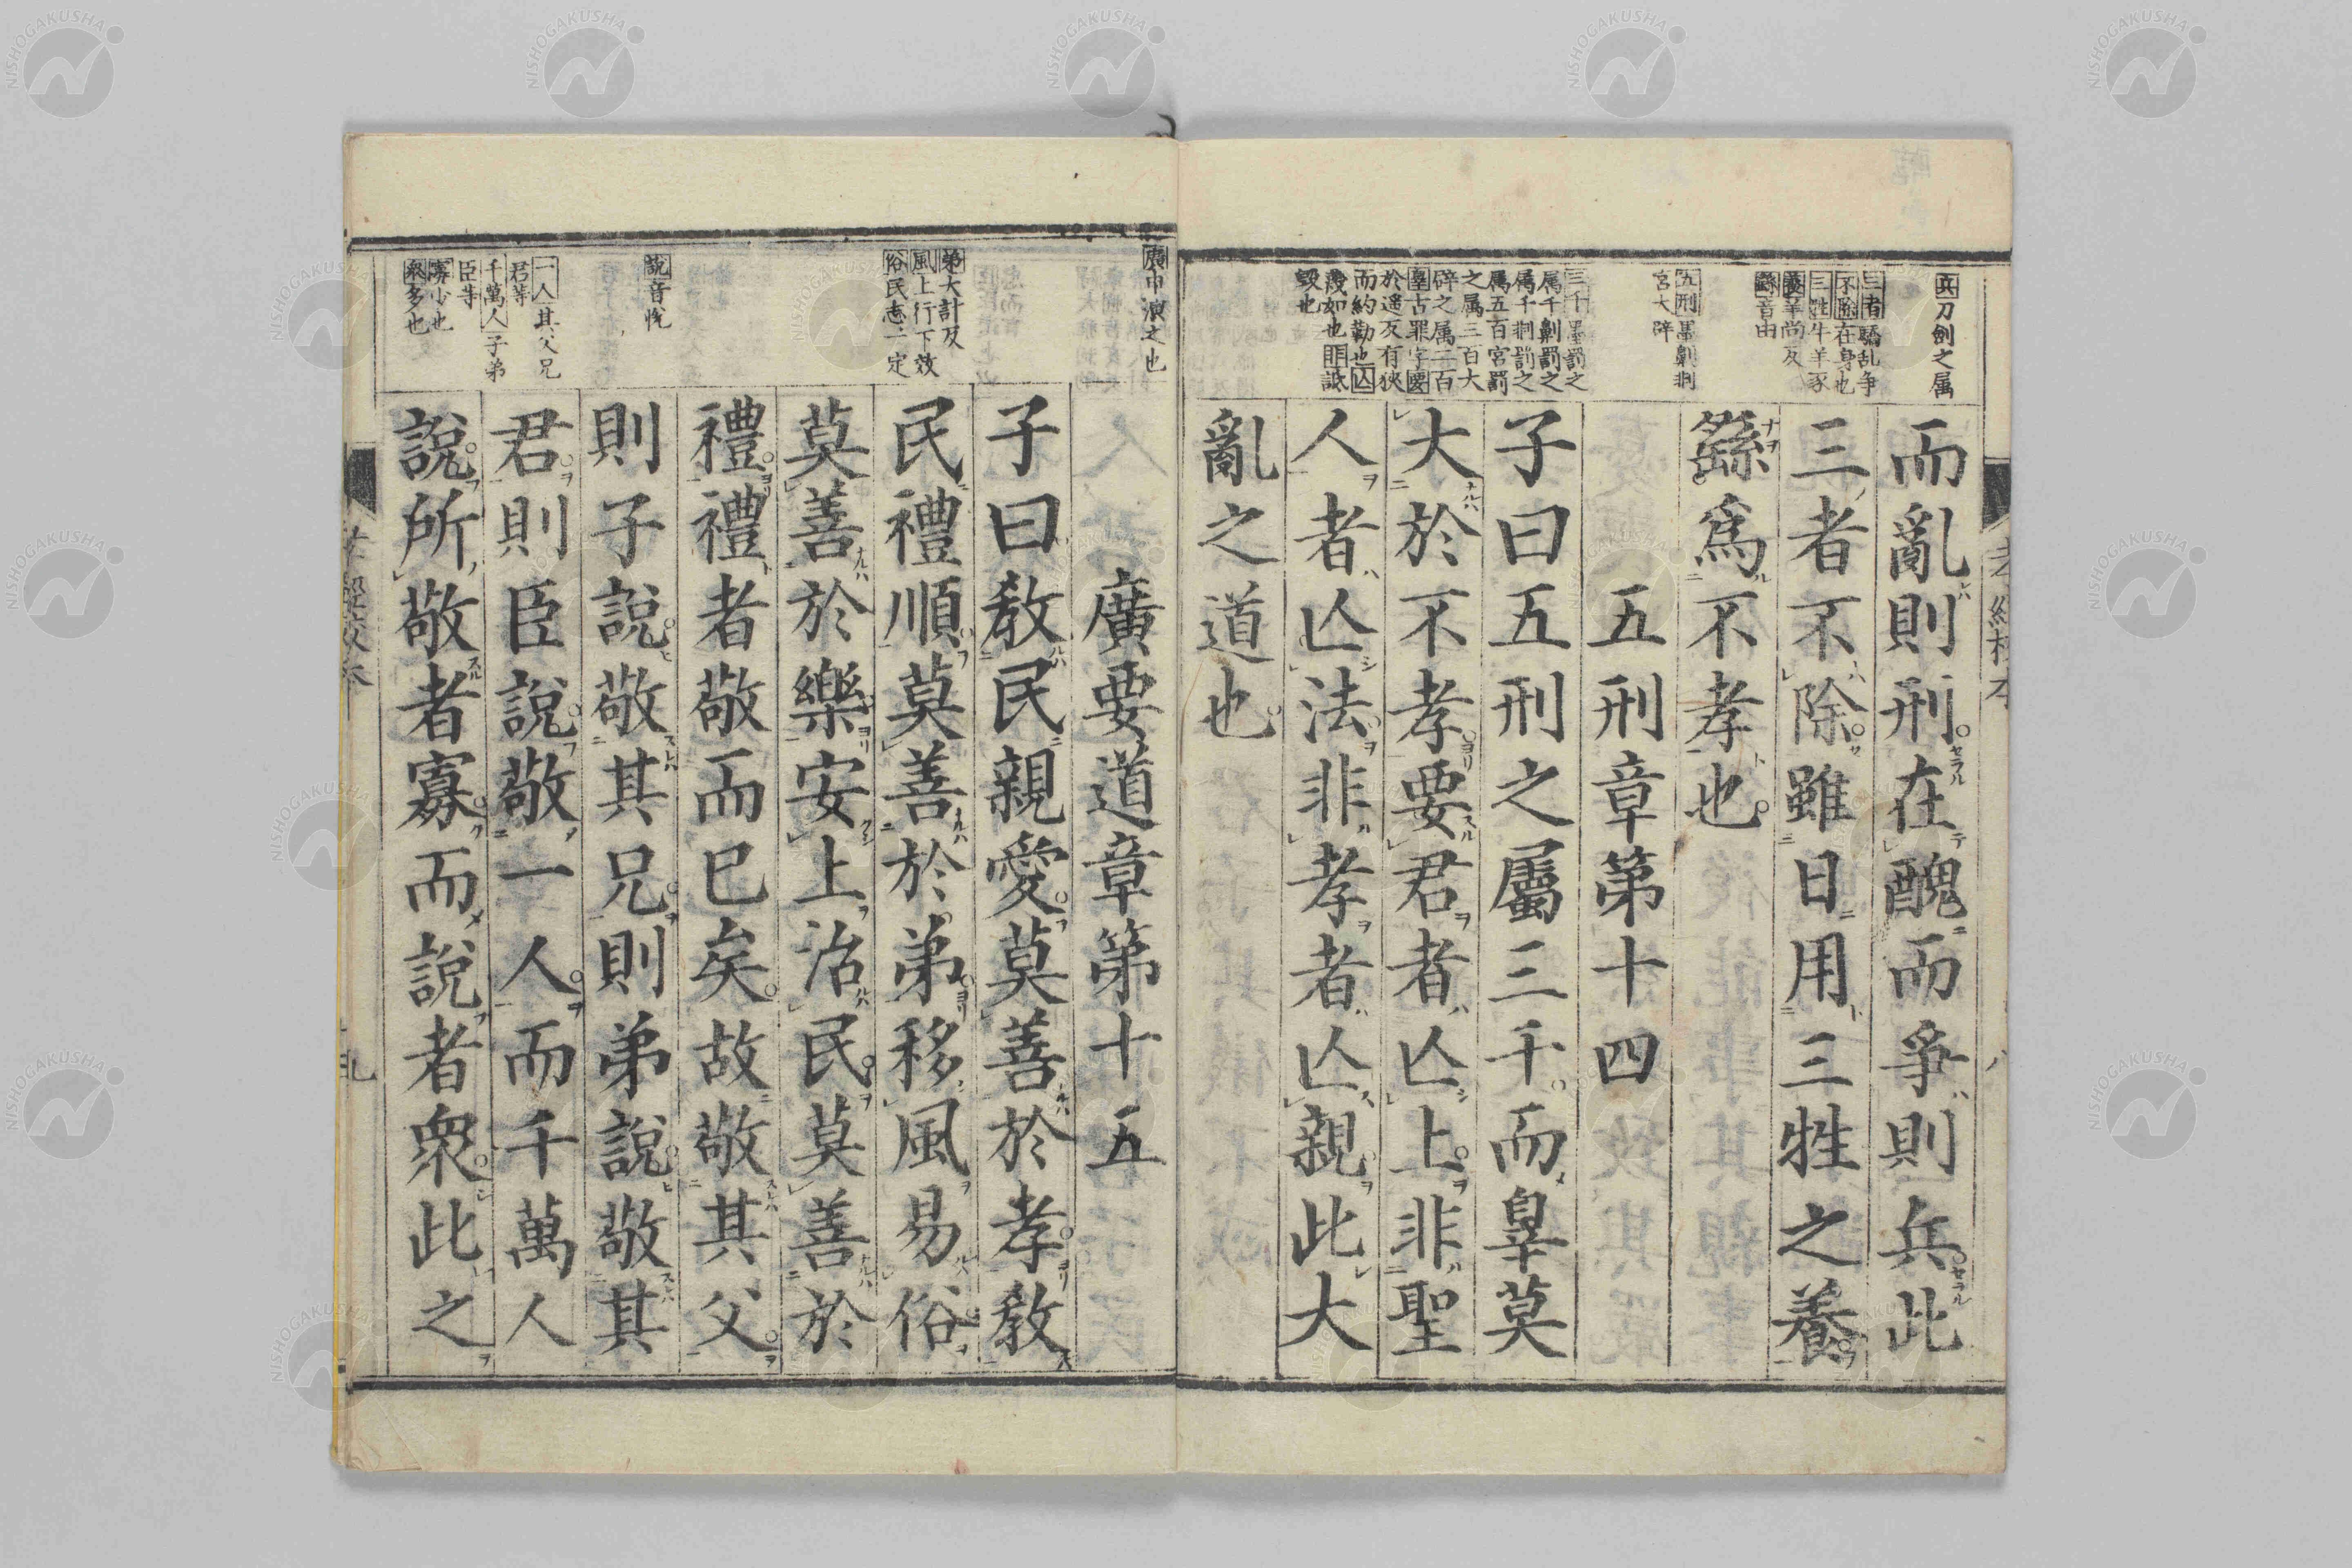 兵刀劍之属
三者驕乱争
不除在身也
三牲牛羊豕
養羊尚反
繇音由
五刑墨劓剕
宮大辟
三千墨罰之
属千劓罰之
属千剕罰之
属五百宮罰
之属三百大
辟之属二百
辠古罪字要
於遥反有狹
而約勸也亾
蔑如也非詆
毀也
而亂則刑在醜而爭則兵此
三者不除雖日用三牲之養
繇爲不孝也
五刑章第十四
子曰五刑之屬三千而辠莫
大於不孝要君者亾上非聖
人者亾法非孝者亾親此大
亂之道也
廣申演之也
弟大計反
風上行下效
俗民志一定
說音悅
一人其父兄
君等
千萬人子弟
臣等
寡少也
衆多也
廣要道章第十五
子曰教民親愛莫善於孝教
民禮順莫善於弟移風易俗
莫善於樂安上治民莫善於
禮禮者敬而已矣故敬其父
則子說敬其兄則弟說敬其
君則臣說敬一人而千萬人
說所敬者寡而說者衆此之
NISHOGAKUSHA